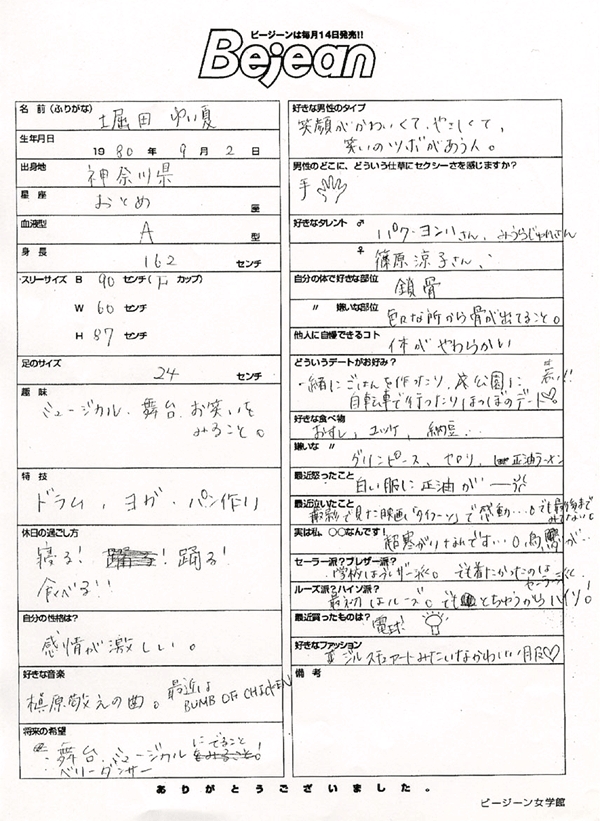 ビージーンは毎月14日発売!!
Bejean
名 前(ふりがな)
堀田 ゆい夏
生年月日
1980年 9月 2日
出身地
神奈川県
星 座
おとめ 座
血液型
A 型
身 長
162 センチ
スリーサイズ B 90 センチ(F カップ)
W 60 センチ
H 87 センチ
足のサイズ
24 センチ
趣 味
ミュージカル、舞台、お笑いを
みること。
特 技
ドラム、ヨガ、パン作り
休日の過ごし方
寝る! 踊る! 踊る!
食べる!!
自分の性格は?
感情が激しい。
好きな音楽
槇原敬之の曲。最近は
BUMB OF CHICKEN
将来の希望
舞台、ミュージカルにでること!
をみること
ベリーダンサー
好きな男性のタイプ
笑顔がかわいくて、やさしくて、
笑いのツボがあう人。
男性のどこに、どういう仕草にセクシーさを感じますか?
手
好きなタレント ♂
パク・ヨンハさん、みうらじゅんさん
♀
篠原涼子さん、
自分の体で好きな部位
鎖骨
〃 嫌いな部位
色々な所から骨が出てること。
他人に自慢できるコト
体がやわらかい
どういうデートがお好み?
一緒にごはんを作ったり、公園に
自転車で行ったりほのぼのデート♡
好きな食べ物
おすし、ユッケ、納豆…
嫌いな 〃
グリンピース、セロリ、正油ラーメン
最近怒ったこと
白い服に正油が
最近泣いたこと
で見た映画「タイフーン」で感動…。でも最後まで
実は私、○○なんです!
超寒がりなんです…。鳥肌が…
セーラー派?ブレザー派?
学校はブレザー でも着たかったのは
セーラー
ルーズ派?ハイソ派?
最初はルーズ。でもとちゅうからハイソ!
最近買ったものは?
電球
好きなファッション
ジルスチュアートみたいなかわいい服♡
備 考
ありがとうございました。
ビージーン女学館